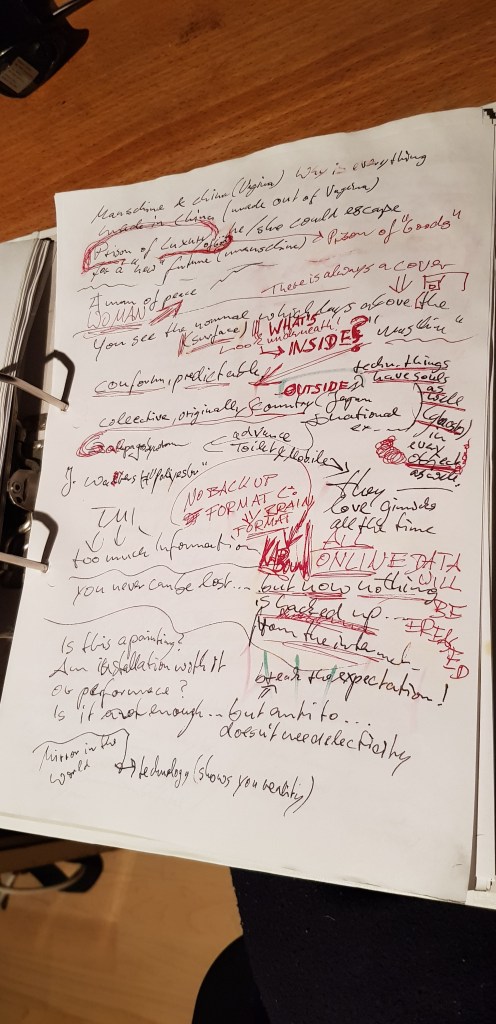 Manschine & china (Vagina) Why is everything
made in China (made out of Vagina)
Prison of Luxury he/she could escape
for a "new" future (manschine) → Prison of "Goods"
There is always a cover
A man of peace
WOMAN
You see the normal which lays above the
(surface) "WHAT'S
Look underneath!
→ INSIDE?
conform, predictable
OUTSIDE?
techn. things
have souls
as
well
collective, originally country (Japan
national
in
every
object
as well!
advance
toilet & mobile
They
love gimicks
all the time
NO BACK UP
FORMAT C:
BRAIN
FORMAT
TMI
too much information
ALL
ONLINE DATA
WILL
BE
you never can be lost.... but now nothing
is backed up....
from the internet
Is this a painting?
An installation worth it
or performance?
break the expectation!
Is it not enough... but anti to...
doesn't need electricity
Mirror in the
world
→ technology (shows you reality)